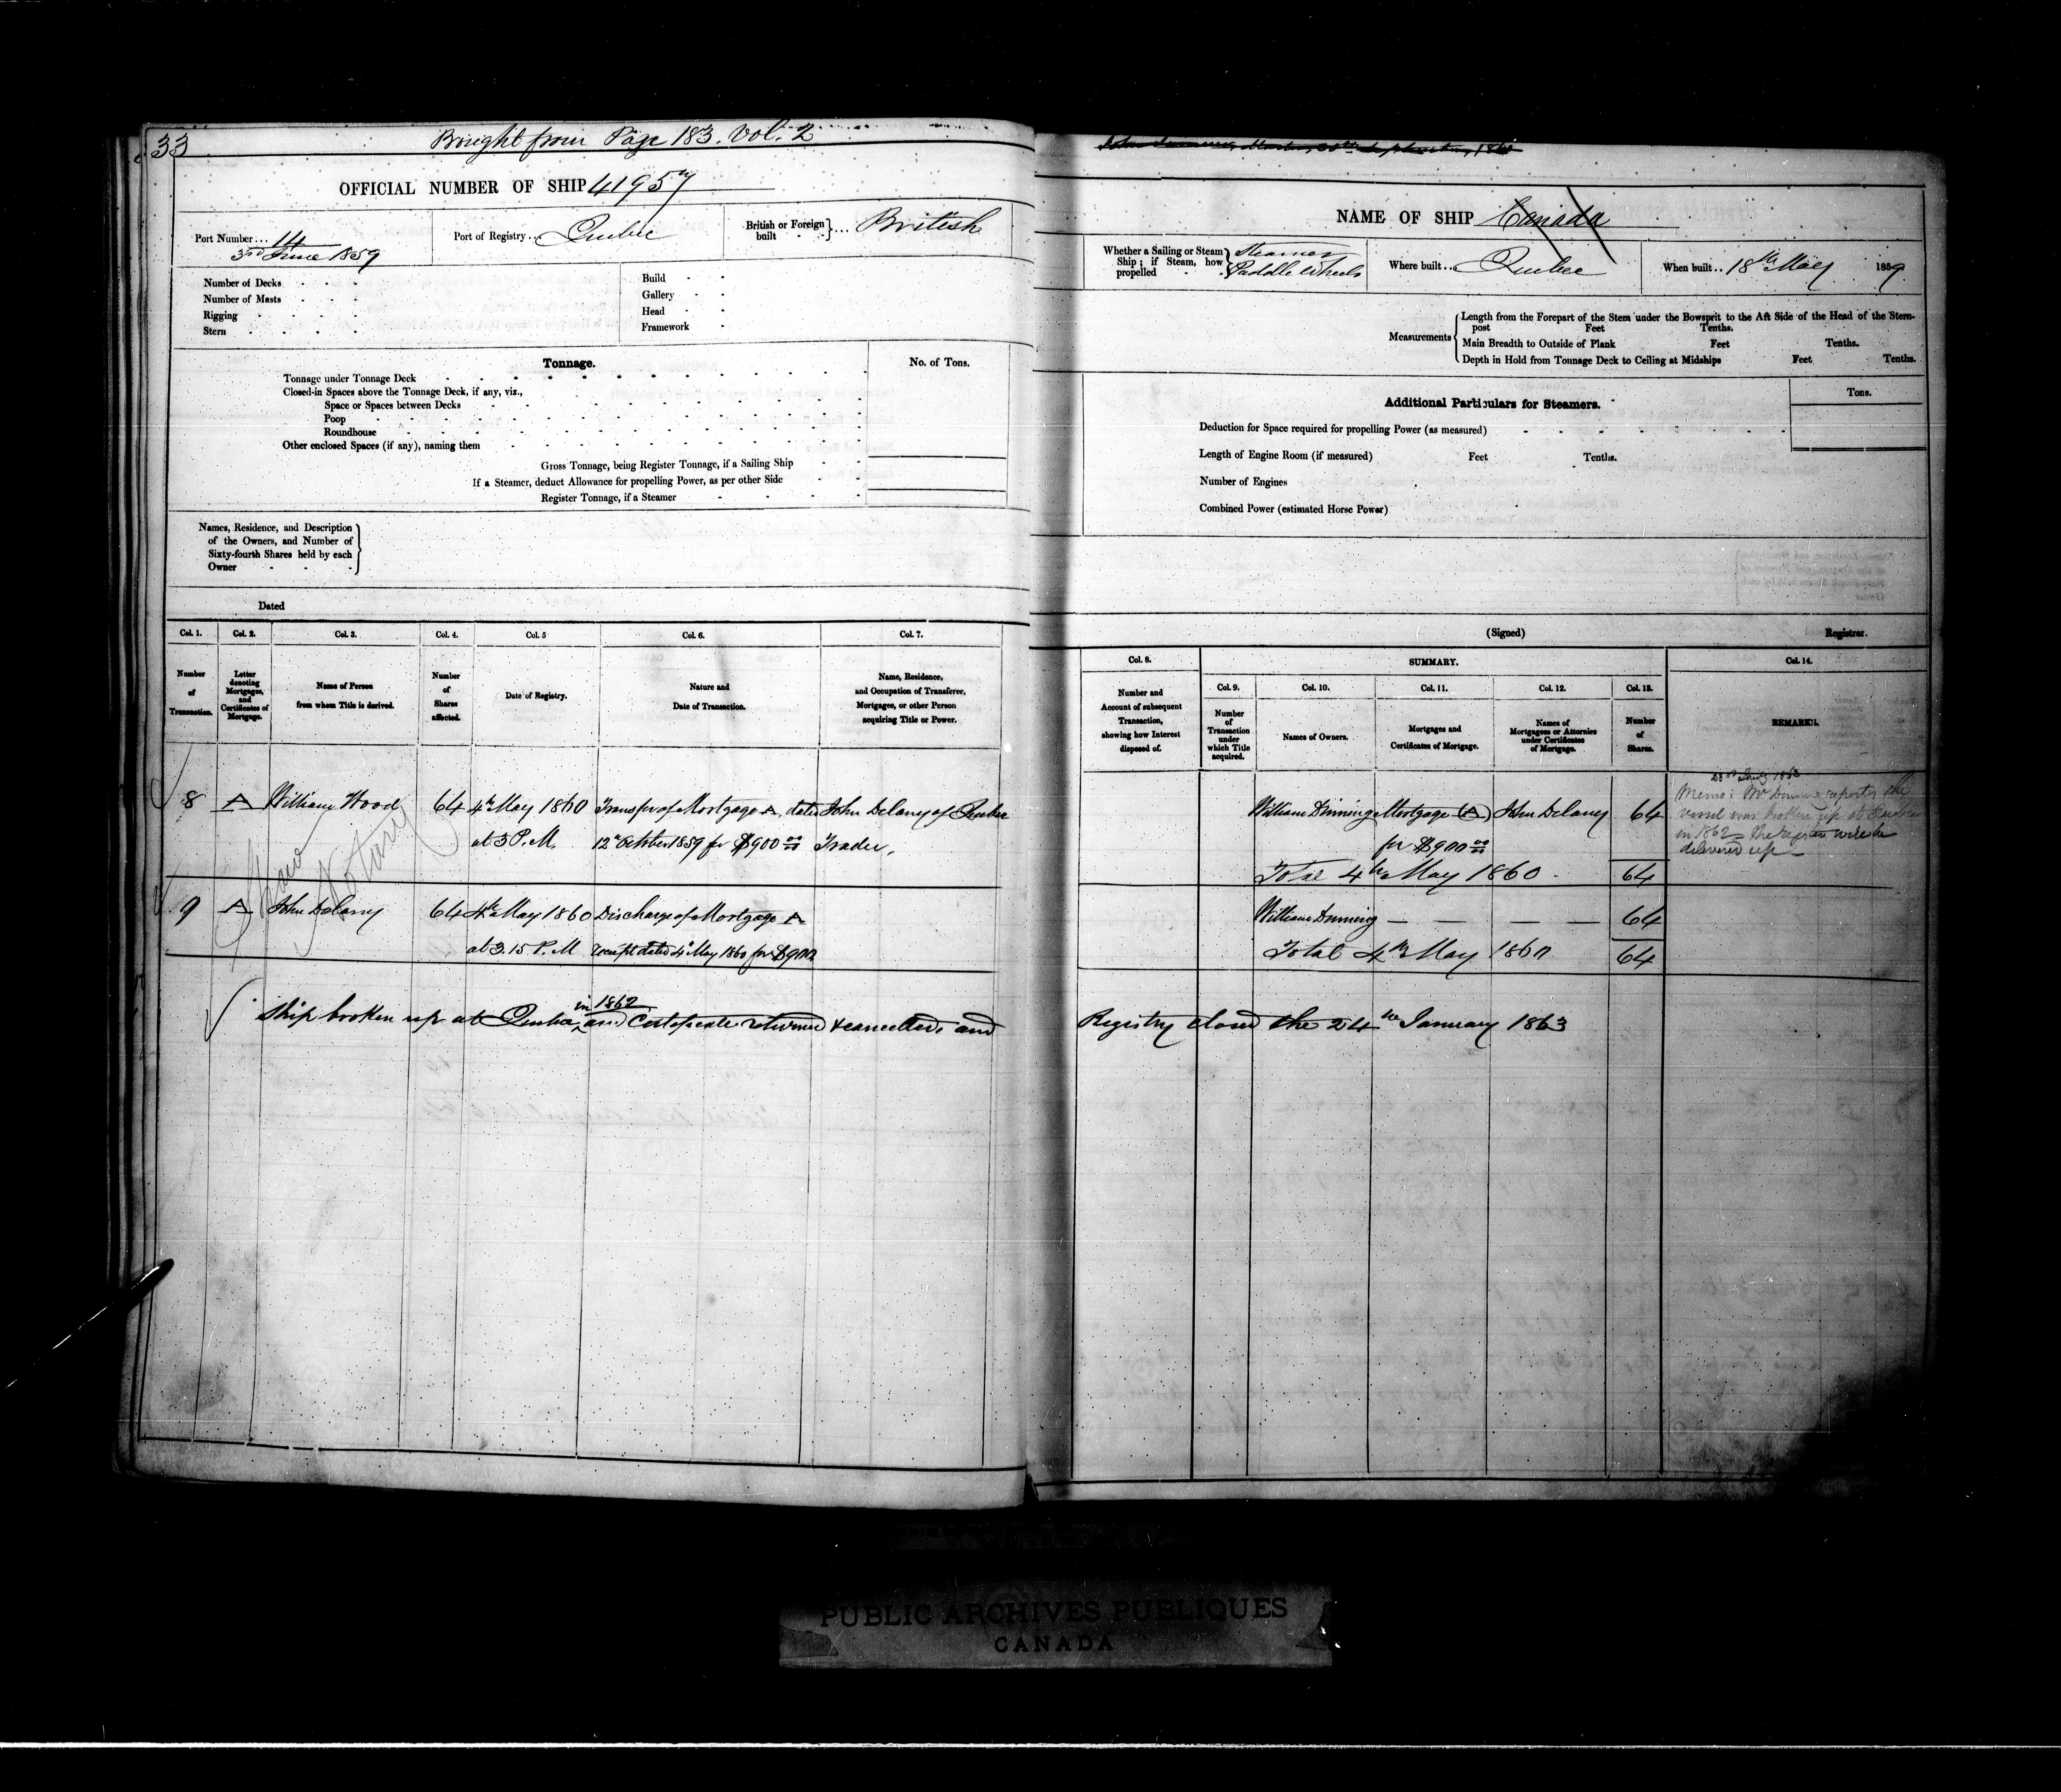 33
Brought from Page 183. Vol. 2
OFFICIAL NUMBER OF SHIP 41957
Port Number... 14
3rd June 1859
Port of Registry... Quebec
British or Foreign built } ... British
Number of Decks
Number of Masts
Rigging
Stern
Build
Gallery
Head
Framework
Tonnage.
No. of Tons.
Tonnage under Tonnage Deck
Closed-in Spaces above the Tonnage Deck, if any, viz.,
Space or Spaces between Decks
Poop
Roundhouse
Other enclosed Spaces (if any), naming them
Gross Tonnage, being Register Tonnage, if a Sailing Ship
If a Steamer, deduct Allowance for propelling Power, as per other Side
Register Tonnage, if a Steamer
Names, Residence, and Description
of the Owners, and Number of
Sixty-fourth Shares held by each
Owner
Dated
Col. 1. Col. 2. Col. 3. Col. 4. Col. 5 Col. 6. Col. 7.
Number of Transaction.
Letter denoting Mortgages, and Certificates of Mortgage.
Name of Person from whom Title is derived.
Number of Shares affected.
Date of Registry.
Nature and Date of Transaction.
Name, Residence, and Occupation of Transferee, Mortgagee, or other Person acquiring Title or Power.
8 A William Wood 64 4th May 1860 Transfer of Mortgage A, dated John Delany of Quebec
at 3 P.M. 12th October 1859 for $900 00 Trader,
Notary
9 A John Delany 64 4th May 1860 Discharge of Mortgage A
at 3.15 P.M receipt dated 4th May 1860 for $900
in 1862
Ship broken up at Quebec and Certificate returned & cancelled and
NAME OF SHIP Canada
Whether a Sailing or Steam
Ship; if Steam, how
propelled
Steamer
Paddle Wheels
Where built.. Quebec
When built.. 18th May 1859
Measurements
Length from the Forepart of the Stem under the Bowsprit to the Aft Side of the Head of the Stern-
post Feet Tenths.
Main Breadth to Outside of Plank Feet Tenths.
Depth in Hold from Tonnage Deck to Ceiling at Midships Feet Tenths.
Additional Particulars for Steamers.
Tons.
Deduction for Space required for propelling Power (as measured)
Length of Engine Room (if measured) Feet Tenths.
Number of Engines
Combined Power (estimated Horse Power)
(Signed) Registrar.
Col. 8. SUMMARY. Col. 14.
Col. 9. Col. 10. Col. 11. Col. 12. Col. 13.
Number and Account of subsequent Transaction, showing how Interest disposed of.
Number of Transaction under which Title acquired.
Names of Owners.
Mortgages and Certificates of Mortgage.
Names of Mortgagees or Attornies under Certificates of Mortgage.
Number of Shares.
REMARKS.
William Dinning Mortgage (A) John Delany 64
for $900 00
Total 4th May 1860 64
1863
Memo: Mr Dinning reports the
vessel was broken up at Quebec
in 1862 The will be
delivered up
William Dinning — — — — 64
Total 4th May 1860 64
Registry closed the 24th January 1863
PUBLIC ARCHIVES PUBLIQUES
CANADA